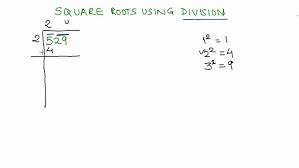 SQUARE ROOTS USING DIVISION
2
2 529
4
1² = 1
2² = 4
3² = 9